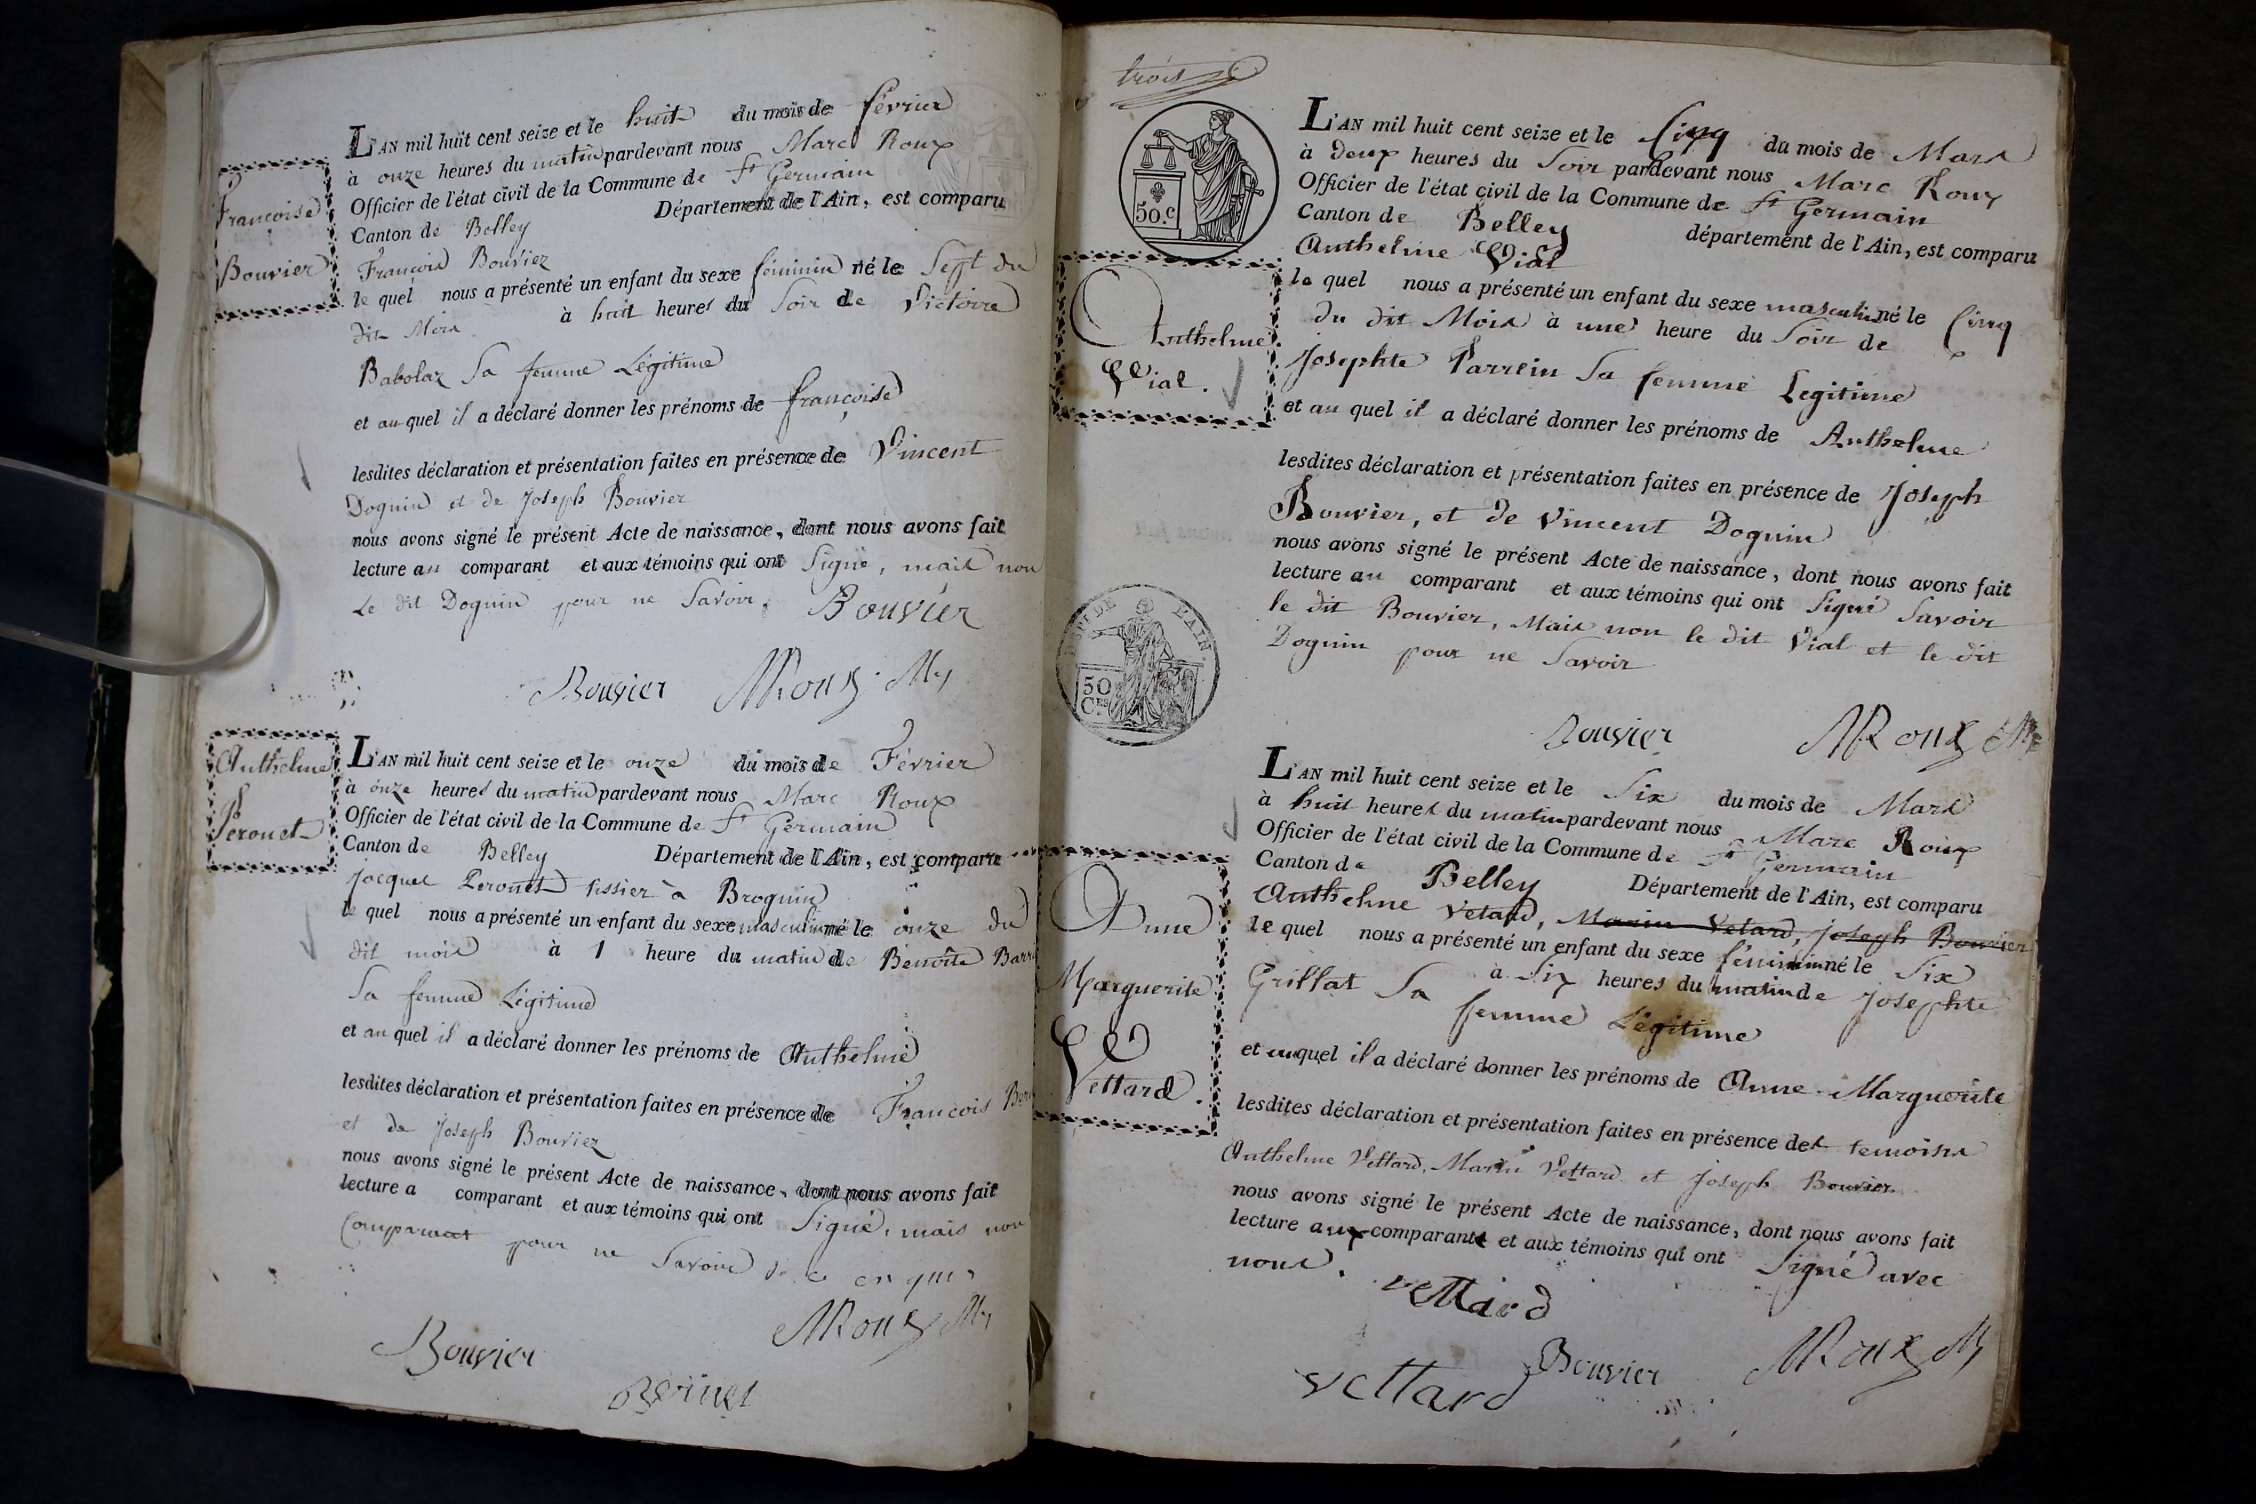 Françoise
Bouvier
L'AN mil huit cent seize et le huit du mois de février
à onze heures du matin pardevant nous Marc Roux
Officier de l'état civil de la Commune de St Germain
Canton de Belley Département de l'Ain, est comparu
François Bouvier
le quel nous a présenté un enfant du sexe féminin né le Sept du
dit Mois à huit heures du Soir de Victoire
Babolaz Sa femme Légitime
et au quel il a déclaré donner les prénoms de françoise
lesdites déclaration et présentation faites en présence de Vincent
Doguin et de Joseph Bouvier
nous avons signé le présent Acte de naissance, dont nous avons fait
lecture au comparant et aux témoins qui ont Signé, mais non
Le dit Doguin pour ne Savoir. Bouvier
Bouvier MRoux My
Anthelme
Peronet
L'AN mil huit cent seize et le onze du mois de Février
à onze heures du matin pardevant nous Marc Roux
Officier de l'état civil de la Commune de St Germain
Canton de Belley Département de l'Ain, est comparu
Jacques Peronet tissier à Brognin
le quel nous a présenté un enfant du sexe masculin né le onze du
dit mois à 1 heure du matin de Benoite
Sa femme Légitime
et au quel il a déclaré donner les prénoms de Anthelme
lesdites déclaration et présentation faites en présence de François
et de Joseph Bouvier
nous avons signé le présent Acte de naissance, dont nous avons fait
lecture a comparant et aux témoins qui ont Signé, mais non
Comparant pour ne Savoir de ce enquis
MRoux My
Bouvier
trois
50.c
Anthelme
Vial.
L'AN mil huit cent seize et le Cinq du mois de Mars
à deux heures du Soir pardevant nous Marc Roux
Officier de l'état civil de la Commune de St Germain
Canton de Belley département de l'Ain, est comparu
Anthelme Vial
le quel nous a présenté un enfant du sexe masculin né le Cinq
du dit Mois à une heure du Soir de
Josephte Parrein Sa femme Legitime
et au quel il a déclaré donner les prénoms de Anthelme
lesdites déclaration et présentation faites en présence de Joseph
Bouvier, et de Vincent Doguin
nous avons signé le présent Acte de naissance, dont nous avons fait
lecture au comparant et aux témoins qui ont Signé Savoir
le dit Bouvier, Mais non le dit Vial et le dit
Doguin pour ne Savoir
DE L'AIN.
50
Ces
Bouvier MRoux My
Anne
Marguerite
Vettard.
L'AN mil huit cent seize et le Six du mois de Mars
à huit heures du matin pardevant nous Marc Roux
Officier de l'état civil de la Commune de St Germain
Canton de Belley Département de l'Ain, est comparu
Anthelme Vetard, Marin Vetard, Joseph Bouvier
le quel nous a présenté un enfant du sexe féminin né le Six
à Six heures du matin de Josephte
Grillat Sa femme Légitime
et auquel il a déclaré donner les prénoms de Anne-Marguerite
lesdites déclaration et présentation faites en présence des temoins
Anthelme Vettard, Marin Vettard et Joseph Bouvier
nous avons signé le présent Acte de naissance, dont nous avons fait
lecture aux comparants et aux témoins qui ont Signé avec
nous.
vettard
Bouvier MRoux My
vettard